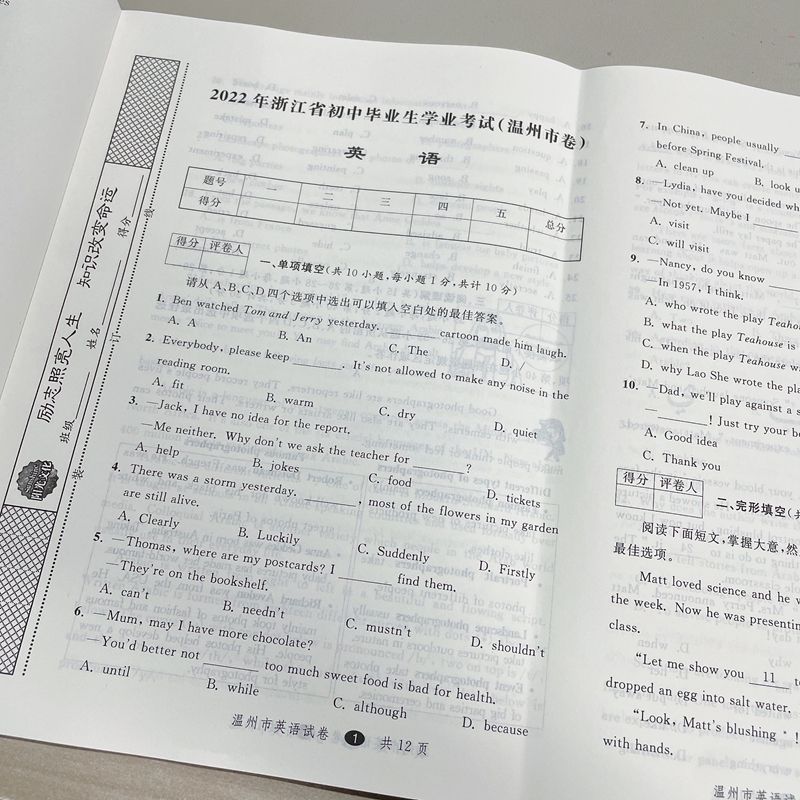 励志照亮人生 知识改变命运
班级 姓名 得分
装 订 线
2022年浙江省初中毕业生学业考试(温州市卷)
英 语
题号 一 二 三 四 五 总分
得分
得分 评卷人
一、单项填空(共10小题,每小题1分,共计10分)
请从A,B,C,D四个选项中选出可以填入空白处的最佳答案。
1. Ben watched Tom and Jerry yesterday. ______ cartoon made him laugh.
A. A B. An C. The D. /
2. Everybody, please keep ______. It's not allowed to make any noise in the
reading room.
A. fit B. warm C. dry D. quiet
3. —Jack, I have no idea for the report.
—Me neither. Why don't we ask the teacher for ______?
A. help B. jokes C. food D. tickets
4. There was a storm yesterday. ______, most of the flowers in my garden
are still alive.
A. Clearly B. Luckily C. Suddenly D. Firstly
5. —Thomas, where are my postcards? I ______ find them.
—They're on the bookshelf.
A. can't B. needn't C. mustn't D. shouldn't
6. —Mum, may I have more chocolate?
—You'd better not ______ too much sweet food is bad for health.
A. until B. while C. although D. because
温州市英语试卷 1 共12页
7. In China, people usually
before Spring Festival.
A. clean up B. look u
8. —Lydia, have you decided wh
—Not yet. Maybe I ______
A. visit
C. will visit
9. —Nancy, do you know ______
—In 1957, I think.
A. who wrote the play Teaho
B. what the play Teahouse is
C. when the play Teahouse w
D. why Lao She wrote the pla
10. —Dad, we'll play against a s
—______! Just try your be
A. Good idea
C. Thank you
得分 评卷人
二、完形填空(共
阅读下面短文,掌握大意,然
最佳选项。
Matt loved science and he w
the week. Now he was presentin
class.
"Let me show you 11 to
dropped an egg into salt water.
"Look, Matt's blushing
with hands.
温州市英语试